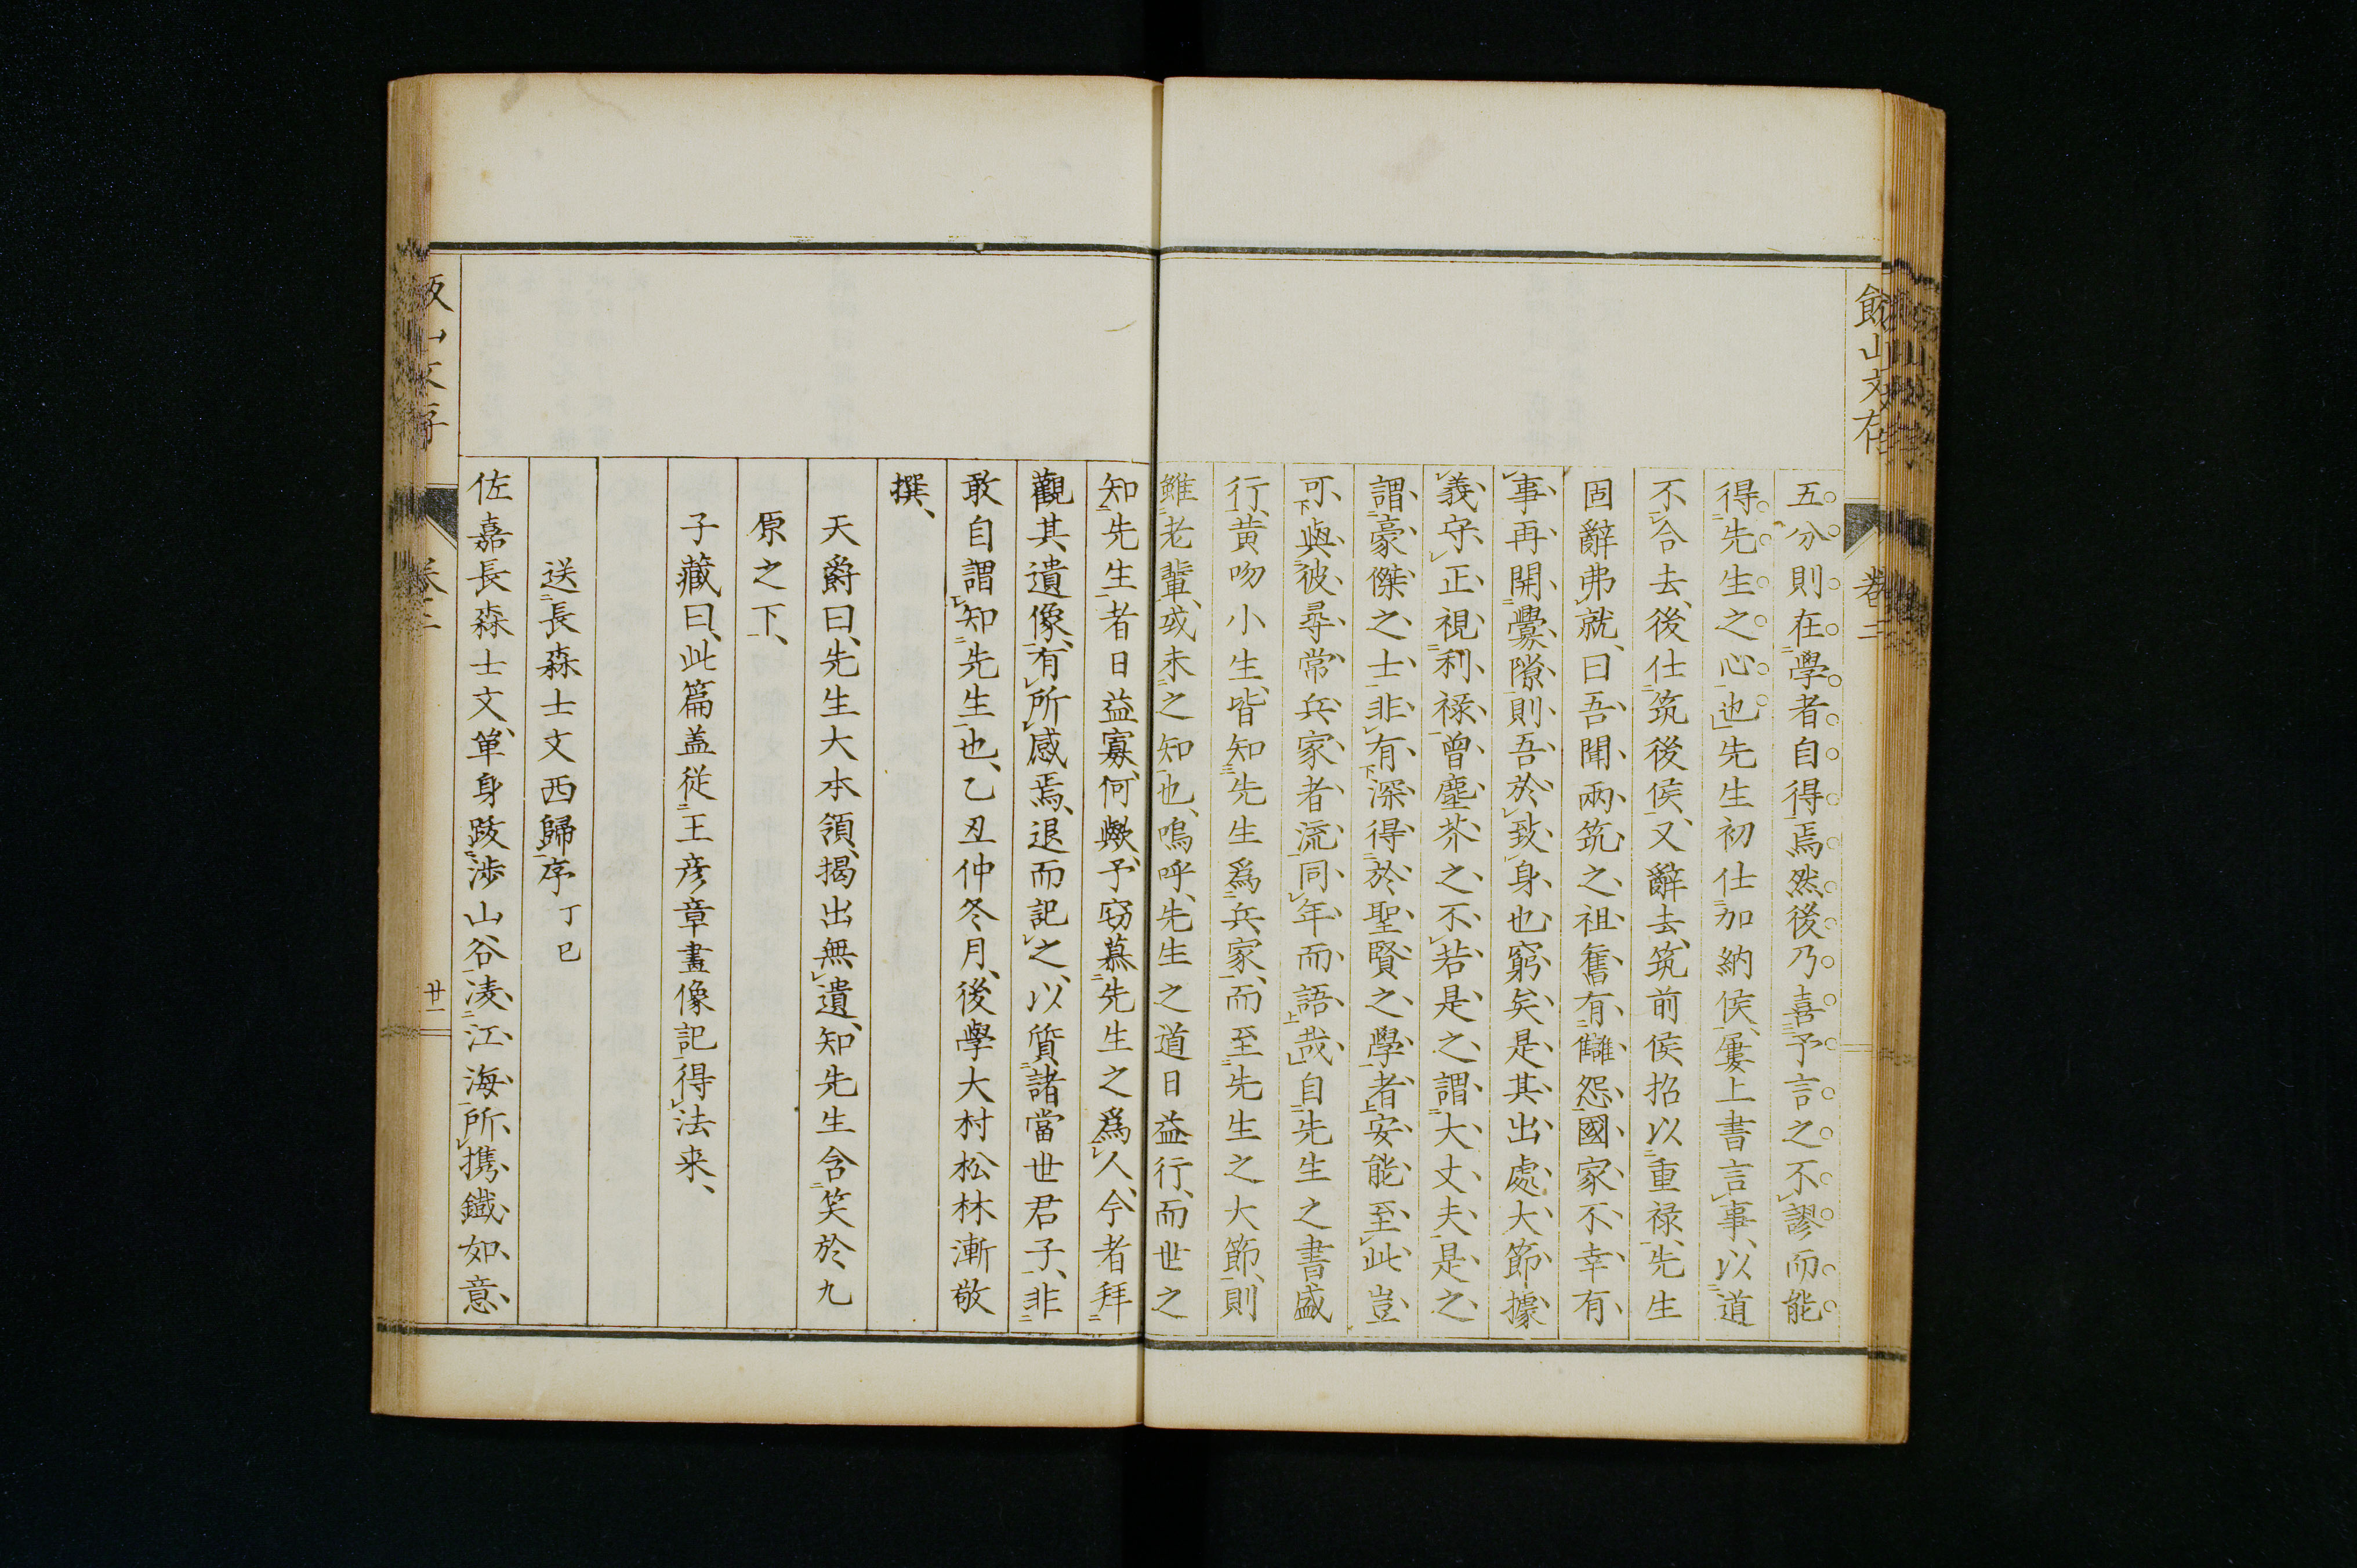 飯山文存
卷二
五分則在學者自得焉然後乃喜予言之不謬而能
得先生之心也先生初仕加納侯、屢上書言事、以道
不合去、後仕筑後侯、又辭去、筑前侯招以重祿、先生
固辭弗就、曰、吾聞兩筑之祖舊有讎怨、國家不幸有
事、再開釁隙、則吾於致身也窮矣、是其出處大節、據
義守正、視利祿曾塵芥之不若、是之謂大丈夫、是之
謂豪傑之士、非有深得於聖賢之學者、安能至此、豈
可與彼尋常兵家者流同年而語哉、自先生之書盛
行、黃吻小生、皆知先生爲兵家、而至先生之大節、則
雖老輩、或未之知也、嗚呼、先生之道日益行、而世之
知先生者日益寡、何歟、予竊慕先生之爲人、今者拜
觀其遺像、有所感焉、退而記之、以質諸當世君子、非
敢自謂知先生也、乙丑仲冬月、後學大村松林漸敬
撰、
天爵曰、先生大本領、揭出無遺、知先生含笑於九
原之下、
子藏曰、此篇盖從王彥章畫像記得法来、
送長森士文西歸序 丁巳
佐嘉長森士文、單身跋涉山谷、凌江海、所携鐵如意、
卷二
廿一